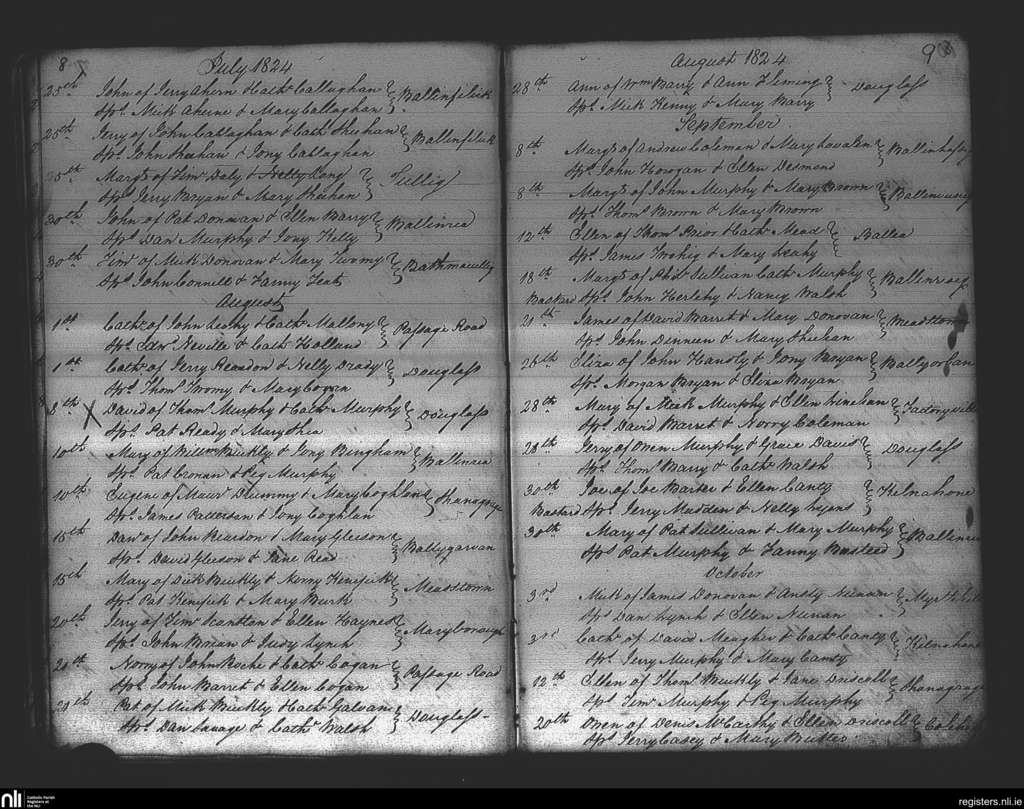 8
July 1824
25th John of Jerry Ahern & Cath. Callaghan Ballinfilick
Sps. Mick Aherne & Mary Callaghan
25th Jerry of John Callaghan & Cath. Sheehan Ballinfilick
Sps. John Sheehan & Jony Callaghan
25th Margt. of Timy. Daly & Nelly Long Tullig
Sps. Jerry Bryan & Mary Sheehan
30th John of Pat Donovan & Ellen Barry Ballinrea
Sps. Dan Murphy & Jony Kelly
30th Timy. of Mick Donovan & Mary Twomy Rathmacullig
Sps. John Connell & Fanny
August
1st Cath. of John Leahy & Cath. Mallony Passage Road
Sps. Edwd. Neville & Cath. Holland
1st Cath. of Jerry Reardon & Nelly Brady Douglass
Sps. Thoms. Twomy & Mary Cogan
8th X David of Thoms. Murphy & Cath. Murphy Douglass
Sps. Pat Ready & Mary Shea
10th Mary of Willm. Buckly & Jony Bingham Ballinrea
Sps. Pat Cronan & Peg Murphy
10th Eugene of Maurs. Drummy & Mary Coghlan Shanagraga
Sps. James Patterson & Jony Coghlan
15th Danl. of John Reardon & Mary Gleeson Ballygarvan
Sps. David Gleeson & Jane Read
15th Mary of Dick Buckly & Norry Kenefick Meadstown
Sps. Pat Kenefick & Mary Burk
20th Jerry of Timy. Scantlon & Ellen Haynes Maryborough
Sps. John Brian & Judy Lynch
20th Norry of John Roche & Cath. Cogan Passage Road
Sps. John Barret & Ellen Cogan
20th Pat of Mick Buckly & Cath. Galvan Douglass
Sps. Dan Savage & Cath. Walsh
9
August 1824
28th Ann of Wm. Barry & Ann Fleming Douglass
Sps. Mick Kenny & Mary Barry
September
8th Margt. of Andrew Coleman & Mary Ballinhassig
Sps. John Horgan & Ellen Desmond
8th Margt. of John Murphy & Mary Brown
Sps. Thoms. Brown & Mary Brown
12th Ellen of Thoms. Prior & Cath. Mead Ballea
Sps. James Twohig & Mary Leahy
18th Margt. of Phil. Sullivan Cath. Murphy
Bastard Sps. John Herlihy & Nancy Walsh
21st James of David Barret & Mary Donovan Meadstown
Sps. John Dinneen & Mary Sheehan
25th Eliza of John Hanoly & Jony Bryan
Sps. Morgan Bryan & Eliza Bryan
28th Mary of Mick Murphy & Ellen Factoryville
Sps. David Barret & Norry Coleman
28th Jerry of Owen Murphy & Grace Davis Douglass
Sps. Thoms. Barry & Cath. Walsh
30th Joe of Joe Barter & Ellen Canty Kilnahone
Bastard Sps. Jerry Madden & Nelly Lyons
30th Mary of Pat Sullivan & Mary Murphy Ballinrea
Sps. Pat Murphy & Fanny Busteed
October
3rd Mick of James Donovan & Ansty Nunan
Sps. Dan Lynch & Ellen Nunan
3rd Cath. of David Meagher & Cath. Canty Kilnahone
Sps. Jerry Murphy & Mary Canty
12th Ellen of Thoms. Buckly & Jane Driscoll Shanagraga
Sps. Timy. Murphy & Peg Murphy
20th Owen of Denis McCarthy & Ellen Driscoll
Sps. Jerry Casey & Mary Butler
nli
Catholic Parish
Registers at
the NLI
registers.nli.ie